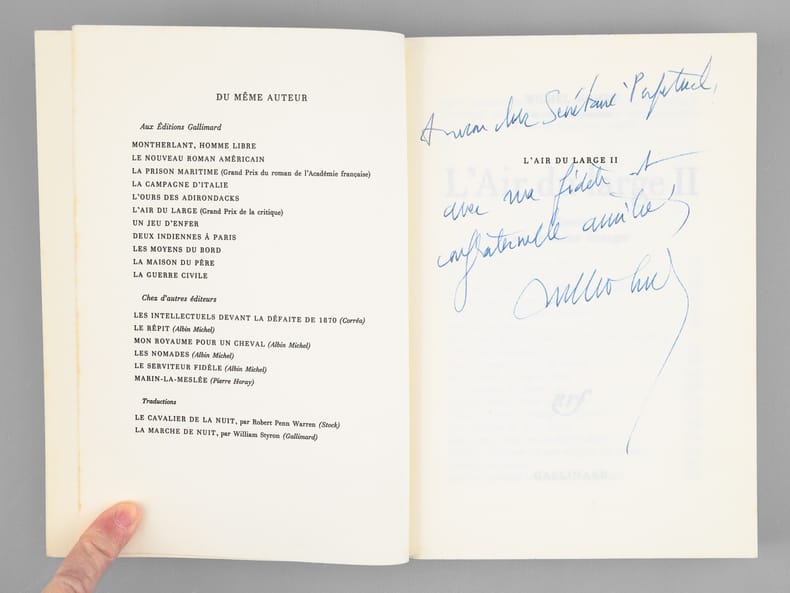 DU MÊME AUTEUR
Aux Éditions Gallimard
MONTHERLANT, HOMME LIBRE
LE NOUVEAU ROMAN AMÉRICAIN
LA PRISON MARITIME (Grand Prix du roman de l'Académie française)
LA CAMPAGNE D'ITALIE
L'OURS DES ADIRONDACKS
L'AIR DU LARGE (Grand Prix de la critique)
UN JEU D'ENFER
DEUX INDIENNES À PARIS
LES MOYENS DU BORD
LA MAISON DU PÈRE
LA GUERRE CIVILE
Chez d'autres éditeurs
LES INTELLECTUELS DEVANT LA DÉFAITE DE 1870 (Corréa)
LE RÉPIT (Albin Michel)
MON ROYAUME POUR UN CHEVAL (Albin Michel)
LES NOMADES (Albin Michel)
LE SERVITEUR FIDÈLE (Albin Michel)
MARIN-LA-MESLÉE (Pierre Horay)
Traductions
LE CAVALIER DE LA NUIT, par Robert Penn Warren (Stock)
LA MARCHE DE NUIT, par William Styron (Gallimard)
A mon cher Secrétaire Perpétuel,
L'AIR DU LARGE II
avec ma fidèle et
confraternelle amitié
nrf
GALLIMARD